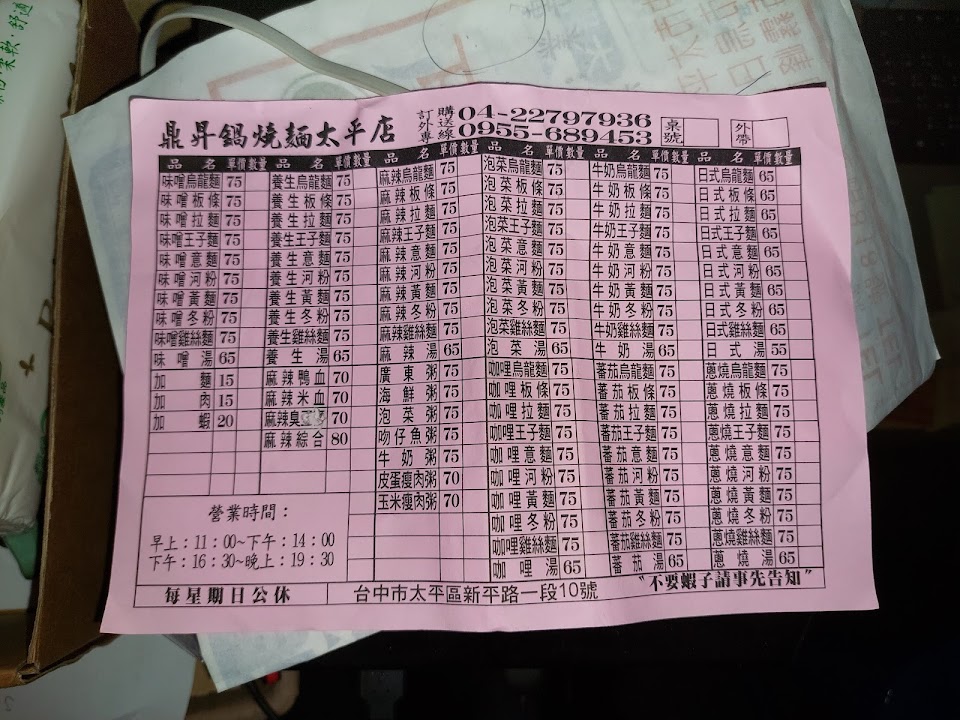 柔軟·舒適
鼎昇鍋燒麵太平店
訂購 外送 專線
04-22797936
0955-689453
桌號
外帶
品名 單價 數量 品名 單價 數量 品名 單價 數量 品名 單價 數量 品名 單價 數量 品名 單價 數量
味噌烏龍麵 75
味噌板條 75
味噌拉麵 75
味噌王子麵 75
味噌意麵 75
味噌河粉 75
味噌黃麵 75
味噌冬粉 75
味噌雞絲麵 75
味噌湯 65
加麵 15
加肉 15
加蝦 20
養生烏龍麵 75
養生板條 75
養生拉麵 75
養生王子麵 75
養生意麵 75
養生河粉 75
養生黃麵 75
養生冬粉 75
養生雞絲麵 75
養生湯 65
麻辣鴨血 70
麻辣米血 70
麻辣臭 70
麻辣綜合 80
麻辣烏龍麵 75
麻辣板條 75
麻辣拉麵 75
麻辣王子麵 75
麻辣意麵 75
麻辣河粉 75
麻辣黃麵 75
麻辣冬粉 75
麻辣雞絲麵 75
麻辣湯 65
廣東粥 75
海鮮粥 75
泡菜粥 75
吻仔魚粥 75
牛奶粥 75
皮蛋瘦肉粥 70
玉米瘦肉粥 70
泡菜烏龍麵 75
泡菜板條 75
泡菜拉麵 75
泡菜王子麵 75
泡菜意麵 75
泡菜河粉 75
泡菜黃麵 75
泡菜冬粉 75
泡菜雞絲麵 75
泡菜湯 65
咖哩烏龍麵 75
咖哩板條 75
咖哩拉麵 75
咖哩王子麵 75
咖哩意麵 75
咖哩河粉 75
咖哩黃麵 75
咖哩冬粉 75
咖哩雞絲麵 75
咖哩湯 65
牛奶烏龍麵 75
牛奶板條 75
牛奶拉麵 75
牛奶王子麵 75
牛奶意麵 75
牛奶河粉 75
牛奶黃麵 75
牛奶冬粉 75
牛奶雞絲麵 75
牛奶湯 65
蕃茄烏龍麵 75
蕃茄板條 75
蕃茄拉麵 75
蕃茄王子麵 75
蕃茄意麵 75
蕃茄河粉 75
蕃茄黃麵 75
蕃茄冬粉 75
蕃茄雞絲麵 75
蕃茄湯 65
日式烏龍麵 65
日式板條 65
日式拉麵 65
日式王子麵 65
日式意麵 65
日式河粉 65
日式黃麵 65
日式冬粉 65
日式雞絲麵 65
日式湯 55
蔥燒烏龍麵 75
蔥燒板條 75
蔥燒拉麵 75
蔥燒王子麵 75
蔥燒意麵 75
蔥燒河粉 75
蔥燒黃麵 75
蔥燒冬粉 75
蔥燒雞絲麵 75
蔥燒湯 65
營業時間：
早上：11：00~下午：14：00
下午：16：30~晚上：19：30
每星期日公休
台中市太平區新平路一段10號
"不要蝦子請事先告知"